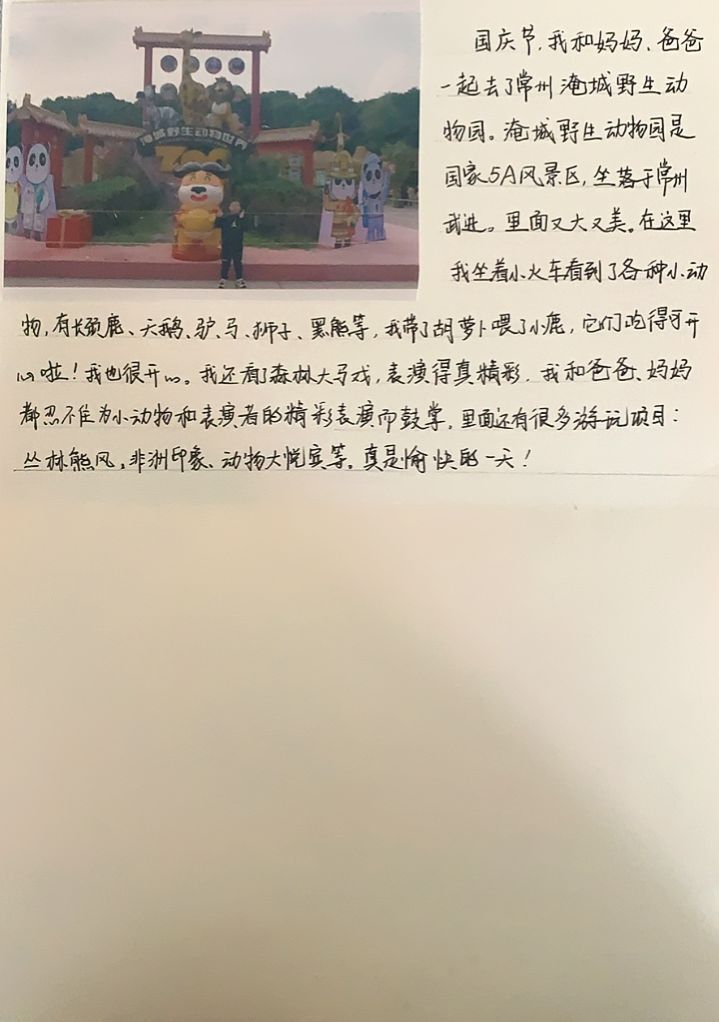 淹城野生动物世界
ZOO
国庆节，我和妈妈、爸爸
一起去了常州淹城野生动
物园。淹城野生动物园是
国家5A风景区，坐落于常州
武进。里面又大又美。在这里
我坐着小火车看到了各种小动
物，有长颈鹿、天鹅、驴、马、狮子、黑熊等，我带了胡萝卜喂了小鹿，它们吃得可开
心啦！我也很开心。我还看了森林大马戏，表演得真精彩，我和爸爸、妈妈
都忍不住为小动物和表演者的精彩表演而鼓掌。里面还有很多游玩项目：
丛林熊风，非洲印象、动物大悦宾等。真是愉快的一天！